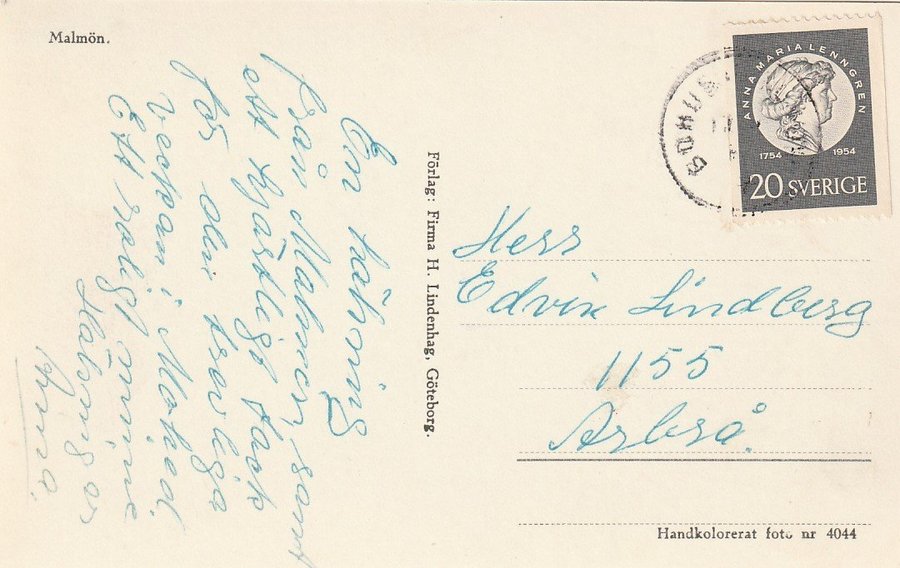 Malmön.
En hälsning
från Malmön, samt
ett hjärtligt tack
för den trevliga
veckan i Mohed.
Ett roligt minne
Hälsningar
Anna.
Förlag: Firma H. Lindenhag, Göteborg.
ANNA MARIA LENNGREN
1754 1954
20 SVERIGE
Herr
Edvin Lindberg
1155
Arbrå.
Handkolorerat foto nr 4044